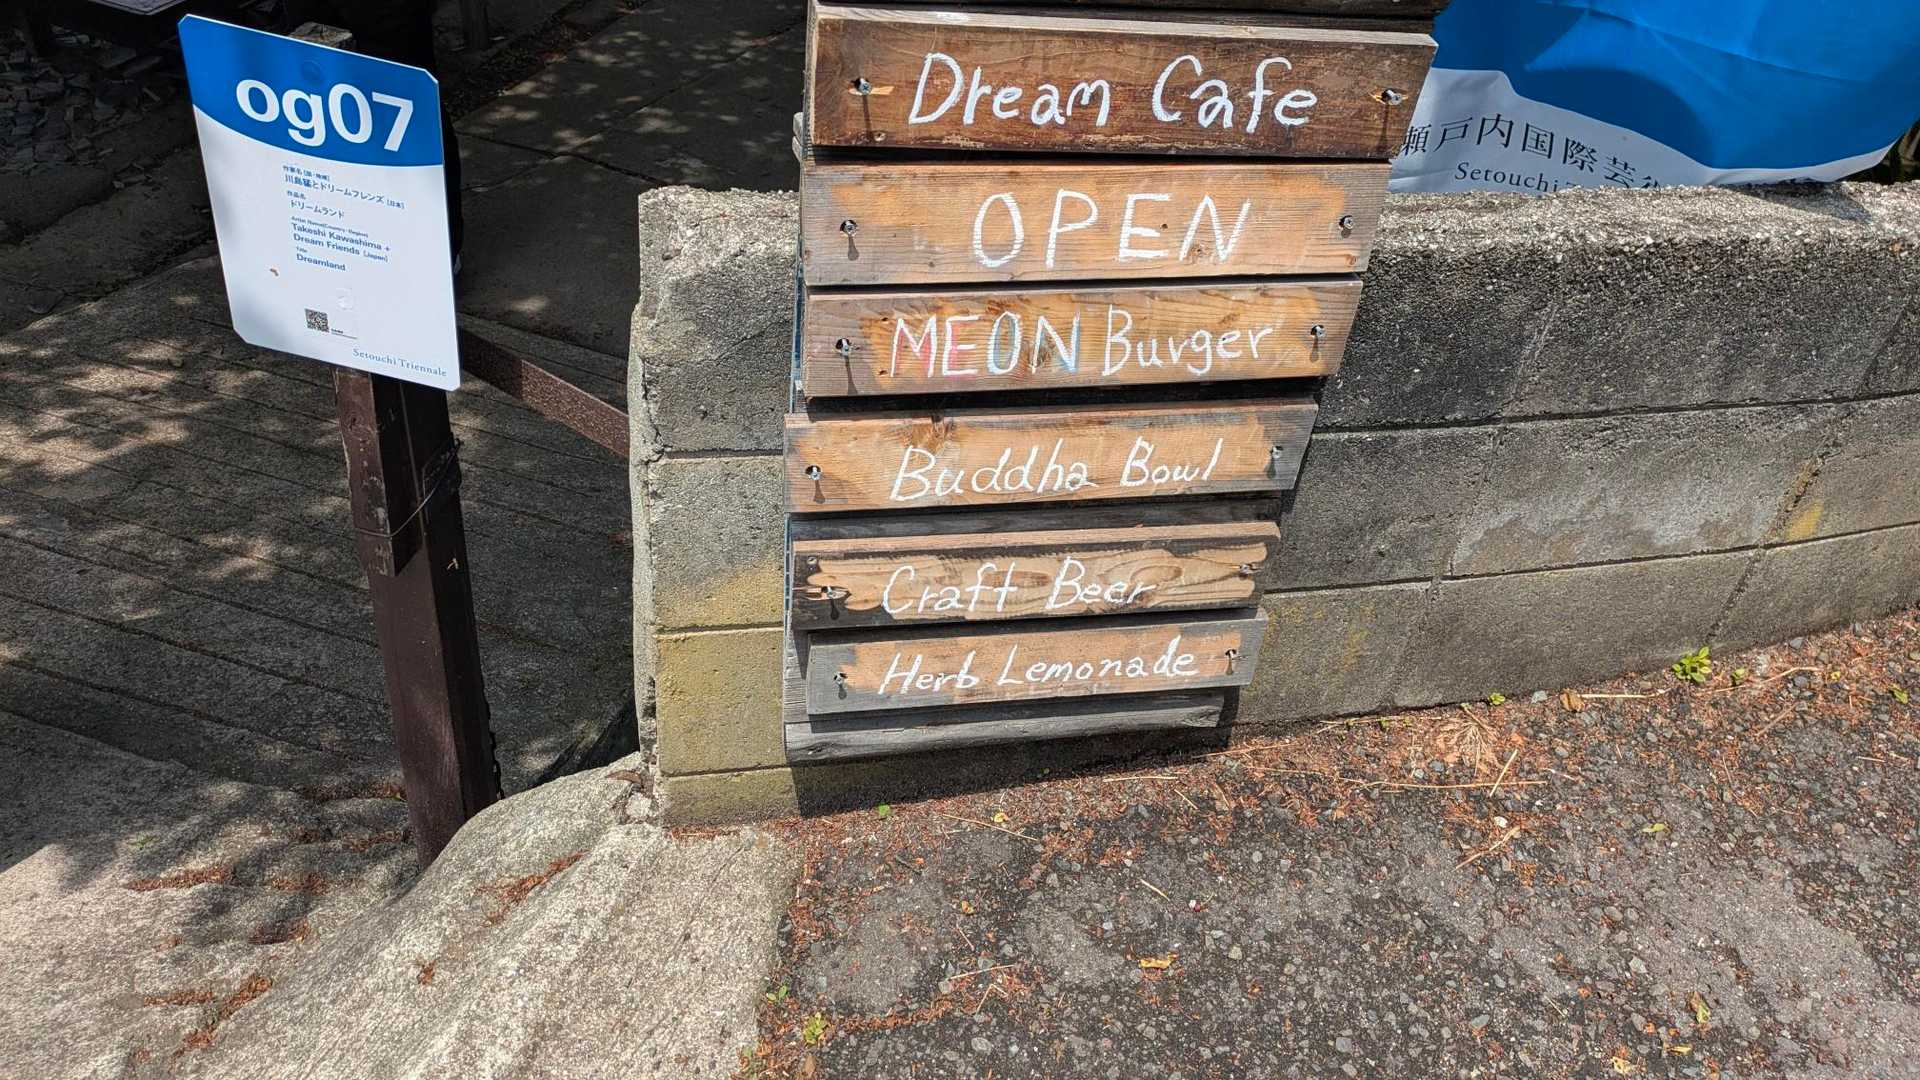 og07
作家名 [国・地域]
川島猛とドリームフレンズ [日本]
作品名
ドリームランド
Artist Name (Country・Region)
Takeshi Kawashima +
Dream Friends [Japan]
Title
Dreamland
Setouchi Triennale
Dream Cafe
OPEN
MEON Burger
Buddha Bowl
Craft Beer
Herb Lemonade
瀬戸内国際芸
Setouchi